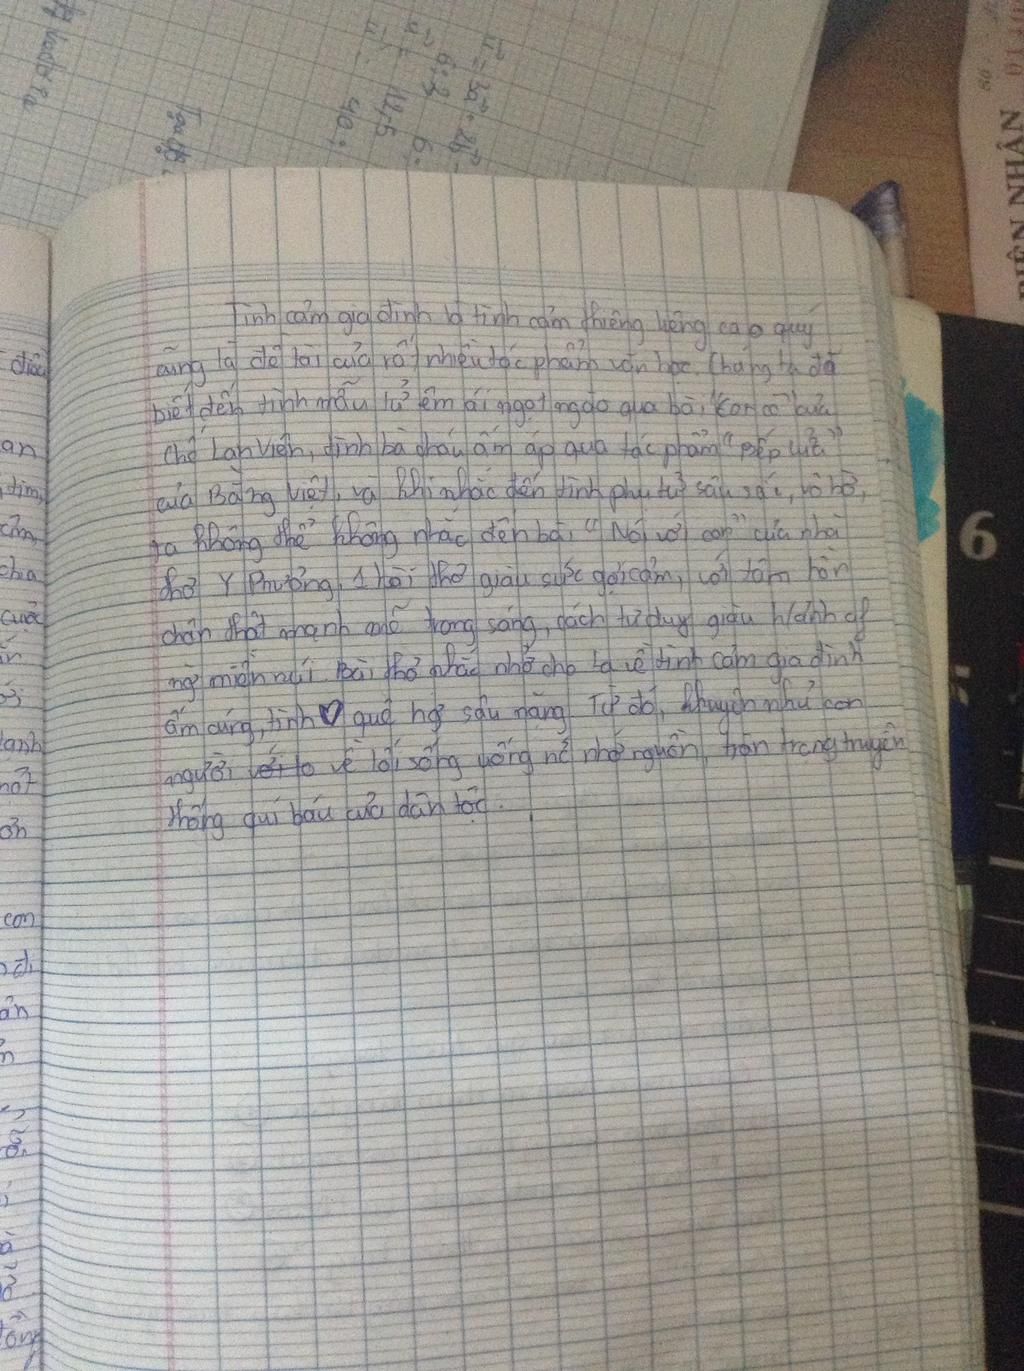 Tình cảm gia đình là tình cảm thiêng liêng cao quý
cũng là đề tài của rất nhiều tác phẩm văn học. Chúng ta đã
biết đến tình mẫu tử êm ái ngọt ngào qua bài "Con cò" của
Chế Lan Viên, tình bà cháu ấm áp qua tác phẩm "Bếp lửa"
của Bằng Việt, và khi nhắc đến tình phụ tử sâu sắc, vô bờ,
ta không thể không nhắc đến bài "Nói với con" của nhà
thơ Y Phương, 1 hồn thơ giàu sức gợi cảm, với tâm hồn
chân thật mạnh mẽ trong sáng, cách tư duy giàu h/ảnh of
ng miền núi. Bài thơ nhắc nhở cho ta về tình cảm gia đình
ấm cúng, tình ♡ quê hg sâu nặng. Từ đó, khuyên nhủ con
người về lối sống uống nc nhớ nguồn, trân trọng truyền
thống quí báu của dân tộc.
BIÊN NHẬN
6
điều
an
tim,
chia
cuộc
lanh
con